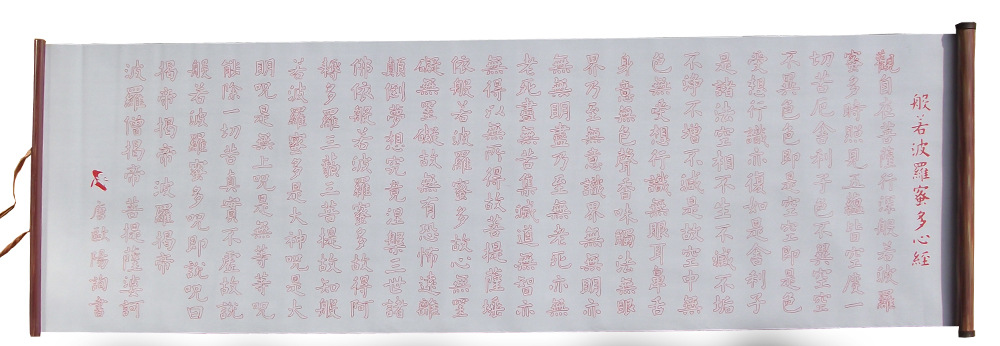 般若波羅蜜多心經
觀自在菩薩行深般若波羅
蜜多時照見五蘊皆空度一
切苦厄舍利子色不異空空
不異色色即是空空即是色
受想行識亦復如是舍利子
是諸法空相不生不滅不垢
不淨不增不減是故空中無
色無受想行識無眼耳鼻舌
身意無色聲香味觸法無眼
界乃至無意識界無無明亦
無無明盡乃至無老死亦無
老死盡無苦集滅道無智亦
無得以無所得故菩提薩埵
依般若波羅蜜多故心無罣
礙無罣礙故無有恐怖遠離
顛倒夢想究竟涅槃三世諸
佛依般若波羅蜜多故得阿
耨多羅三藐三菩提故知般
若波羅蜜多是大神呪是大
明呪是無上呪是無等等呪
能除一切苦真實不虛故說
般若波羅蜜多呪即說呪曰
揭帝揭帝 波羅揭帝
波羅僧揭帝 菩提薩婆訶
唐歐陽詢書